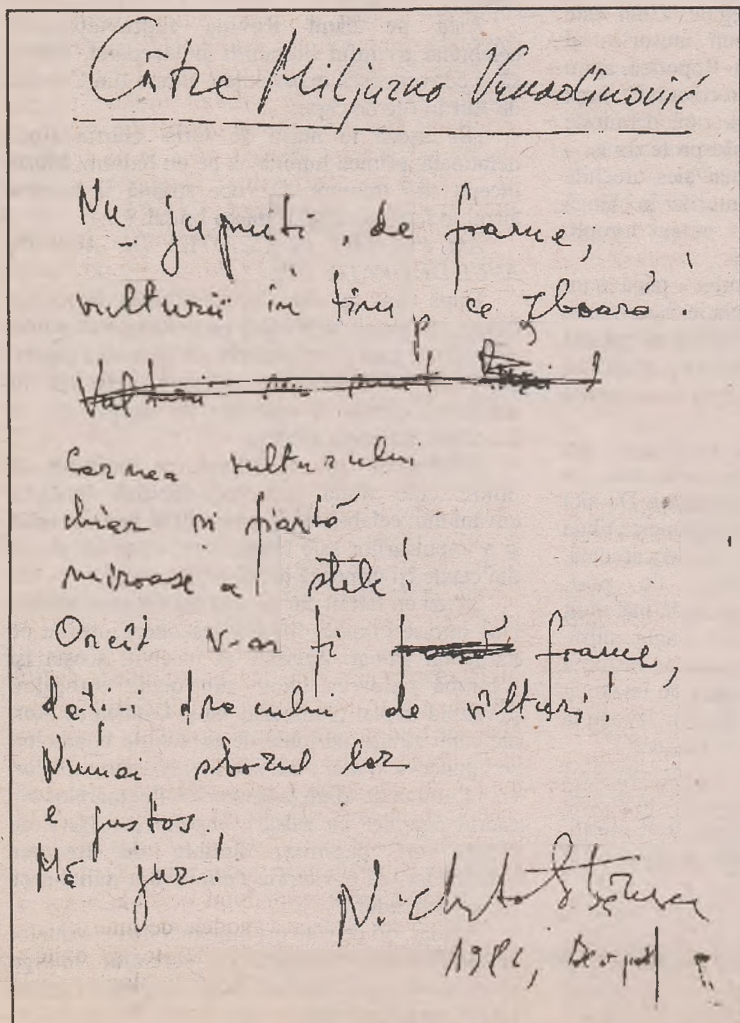 Către Miljurko Vukadinović
Nu jupuiti, de foame,
vulturii in timp ce zboară!
Vulturii nu pot
Carnea vulturului
chiar si fiartă
miroase a stele!
Oricît v-ar fi foame,
dati-i dracului de vulturi!
Numai sborul lor
e gustos.
Mă jur!
Nichita Stănescu
1982, Beograd